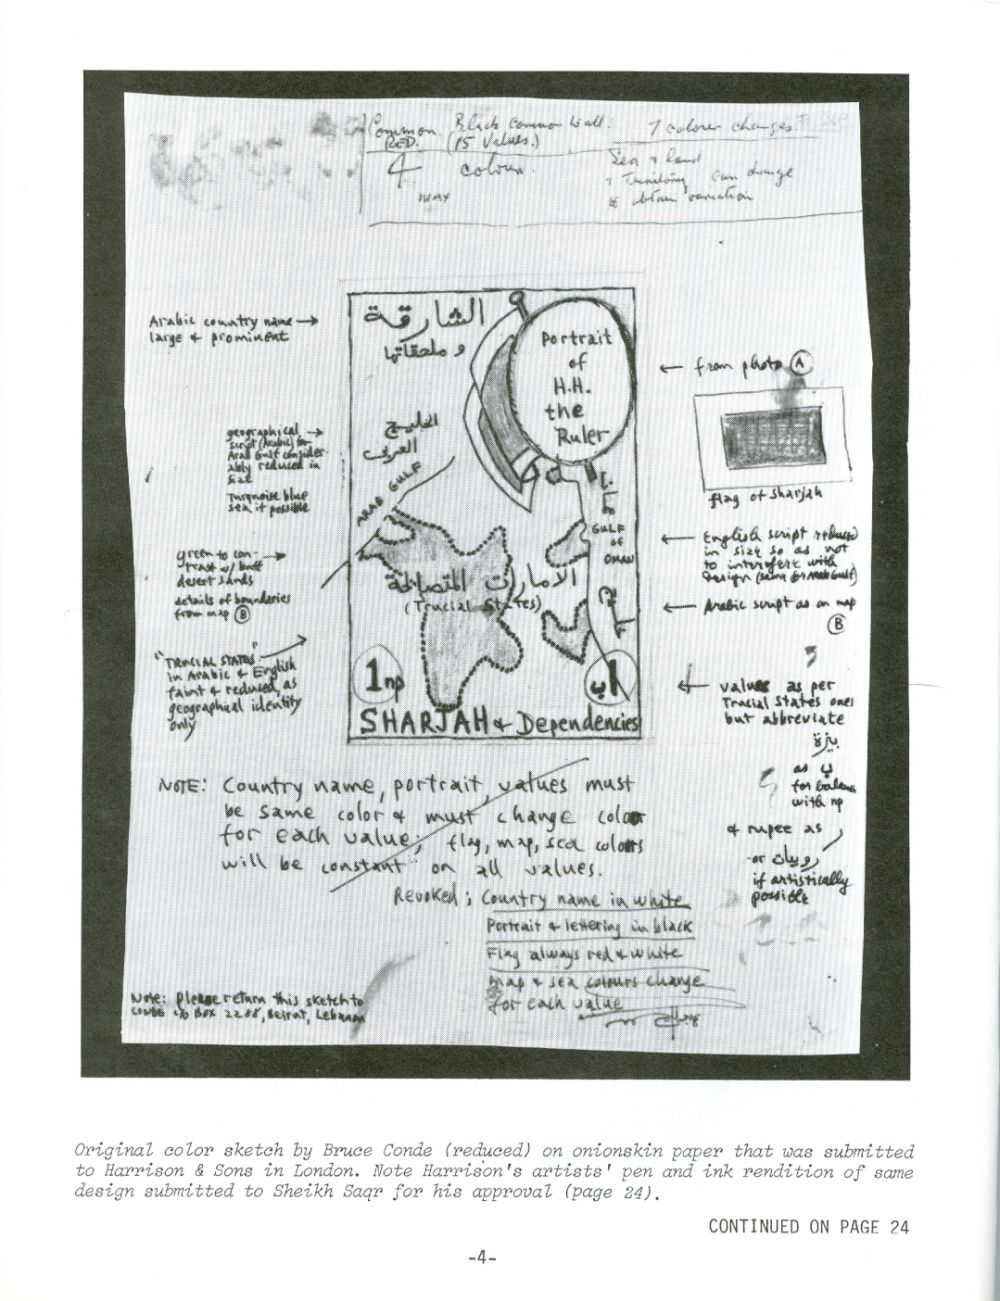 Common Black common to all. 7 colour changes.
RED. (15 values.)
4 colour.
Sea & land
Territory can change
to obtain variation
Arabic country name →
large & prominent
الشارقة
و ملحقاتها
Portrait
of
H.H.
the
Ruler
← from photo A
flag of Sharjah
geographical →
script (Arabic) for
Arab Gulf consider-
ably reduced in
size
Turquoise blue
sea if possible
الخليج
العربي
ARAB GULF
GULF
OF
OMAN
← English script reduced
in size so as not
to interfere with
design (same for Arab Gulf)
← Arabic script as on map
B
green to con- →
trast w/ buff
desert sands
details of boundaries
from map B
الامارات المتصالحة
(Trucial States)
"TRUCIAL STATES"
in Arabic & English
faint & reduced, as
geographical identity
only
1np
١ب
SHARJAH & Dependencies
← values as per
Trucial States ones
but abbreviate
بيزة
as ب
for balance
with np
& rupee as ر
or روبيات
if artistically
possible
NOTE: Country name, portrait, values must
be same color & must change color
for each value; flag, map, sea colors
will be constant on all values.
Revoked; Country name in white
Portrait & lettering in black
Flag always red & white
Map & sea colours change
for each value
Note: Please return this sketch to
CONDE c/o Box 2288, Beirut, Lebanon
Original color sketch by Bruce Conde (reduced) on onionskin paper that was submitted
to Harrison & Sons in London. Note Harrison's artists' pen and ink rendition of same
design submitted to Sheikh Saqr for his approval (page 24).
CONTINUED ON PAGE 24
-4-